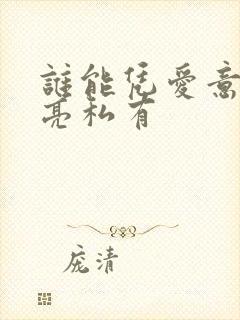 誰能凭愛意
亮私有
庞清